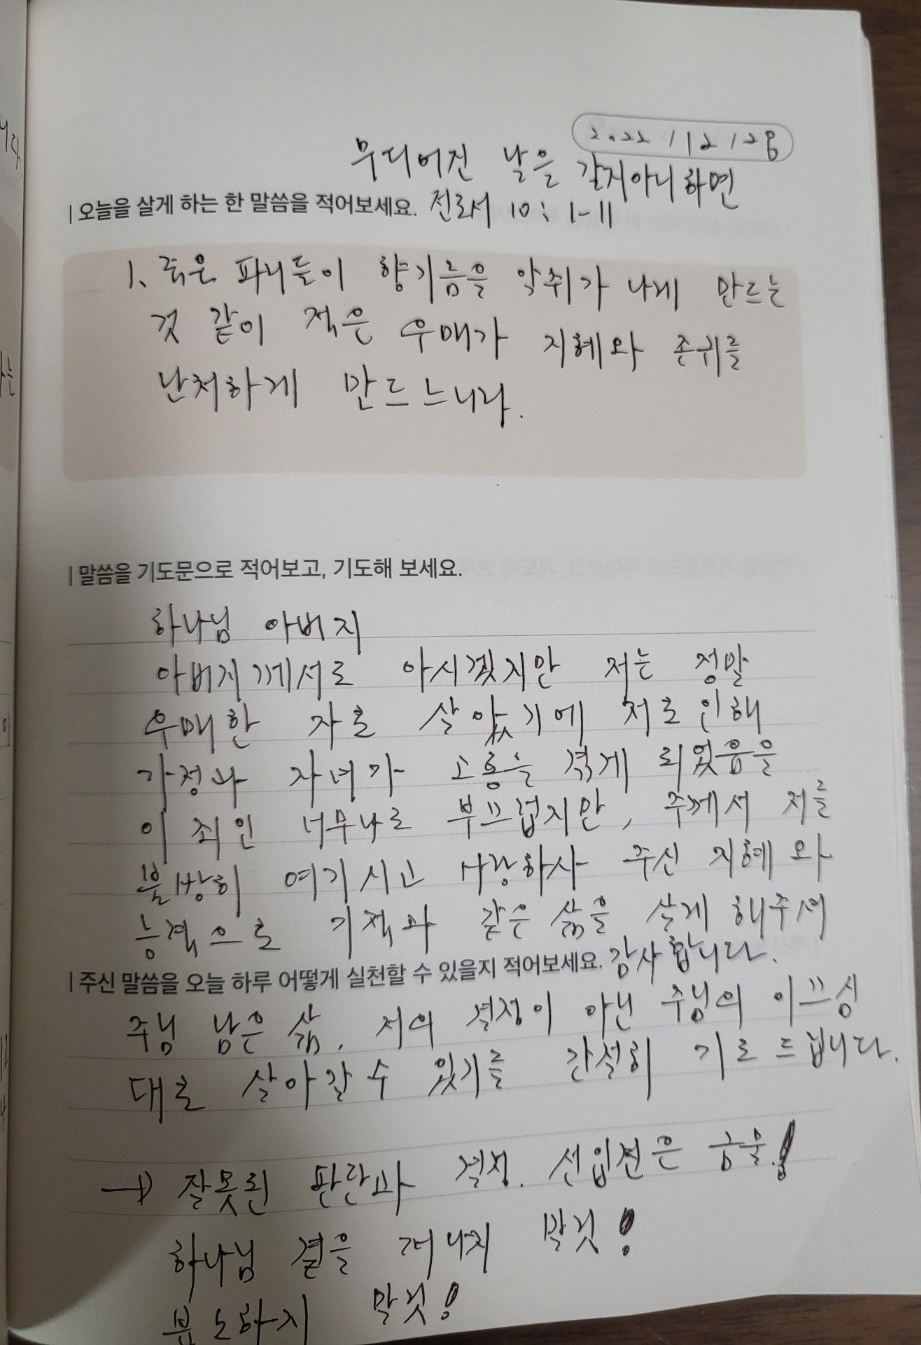 2022/12/28
무디어진 날을 갈지아니하면
| 오늘을 살게 하는 한 말씀을 적어보세요. 전도서 10: 1-11
1. 죽은 파리들이 향기름을 악취가 나게 만드는
것 같이 적은 우매가 지혜와 존귀를
난처하게 만드느니라.
| 말씀을 기도문으로 적어보고, 기도해 보세요.
하나님 아버지
아버지께서도 아시겠지만 저는 정말
우매한 자로 살았기에 저로인해
가정과 자녀가 고통을 겪게 되었음을
이 죄인 너무나도 부끄럽지만, 주께서 저를
불쌍히 여기시고 사랑하사 주신 지혜와
능력으로 기적과 같은 삶을 살게 해주셔
감사합니다.
| 주신 말씀을 오늘 하루 어떻게 실천할 수 있을지 적어보세요.
주님 남은 삶, 저의 결정이 아닌 주님의 이끄심
대로 살아갈 수 있기를 간절히 기도드립니다.
→ 잘못된 판단과 결정. 선입견은 금물!
하나님 곁을 떠나지 말것!
분노하지 말것!